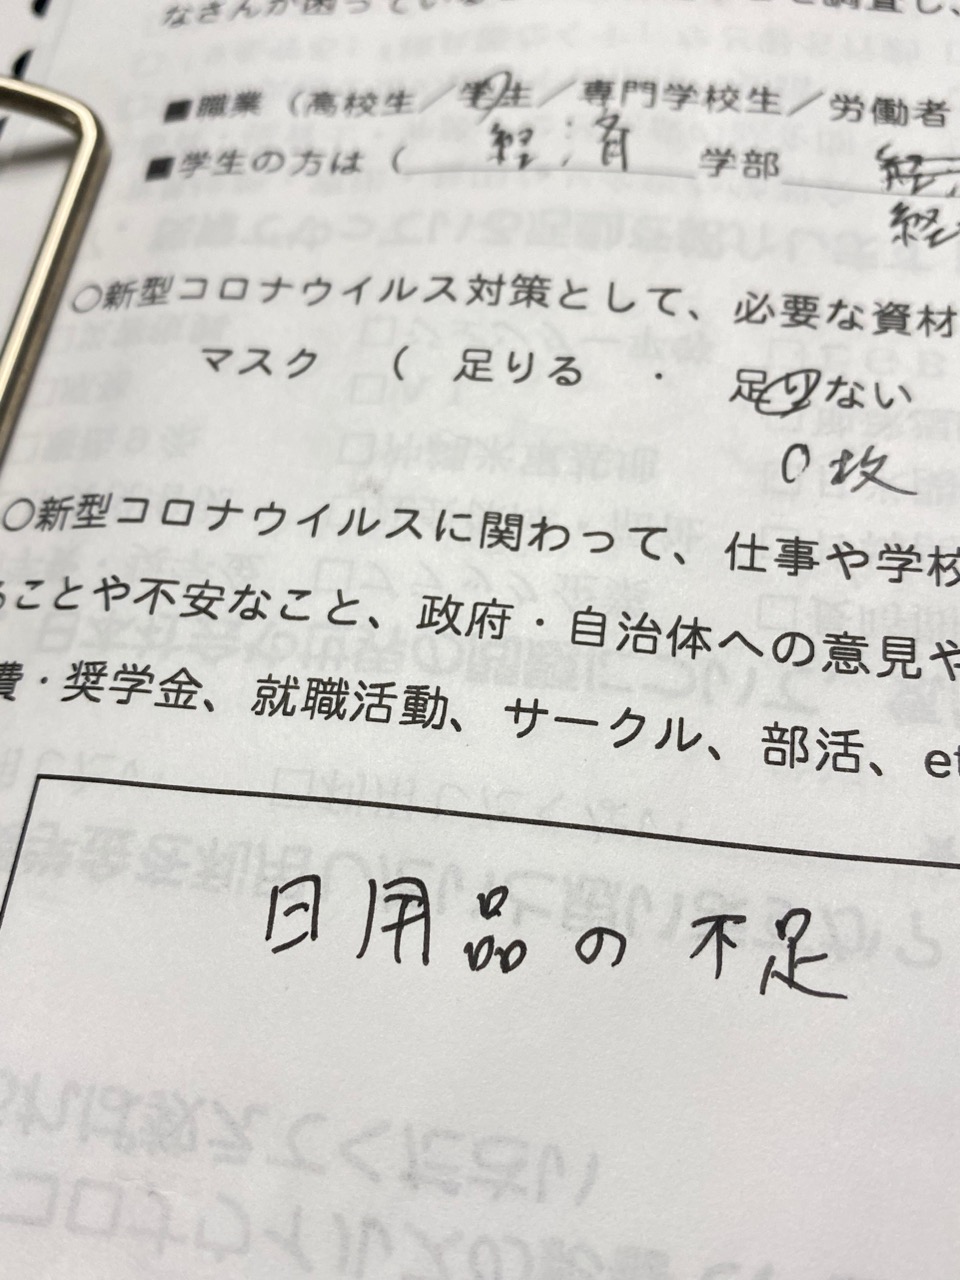 なさんが困っている
■職業（高校生／学生／専門学校生／労働者
■学生の方は（ 経済 学部 経
経
○新型コロナウイルス対策として、必要な資材
マスク （ 足りる ・ 足りない
0枚
○新型コロナウイルスに関わって、仕事や学校
ることや不安なこと、政府・自治体への意見や
費・奨学金、就職活動、サークル、部活、et
日用品の不足